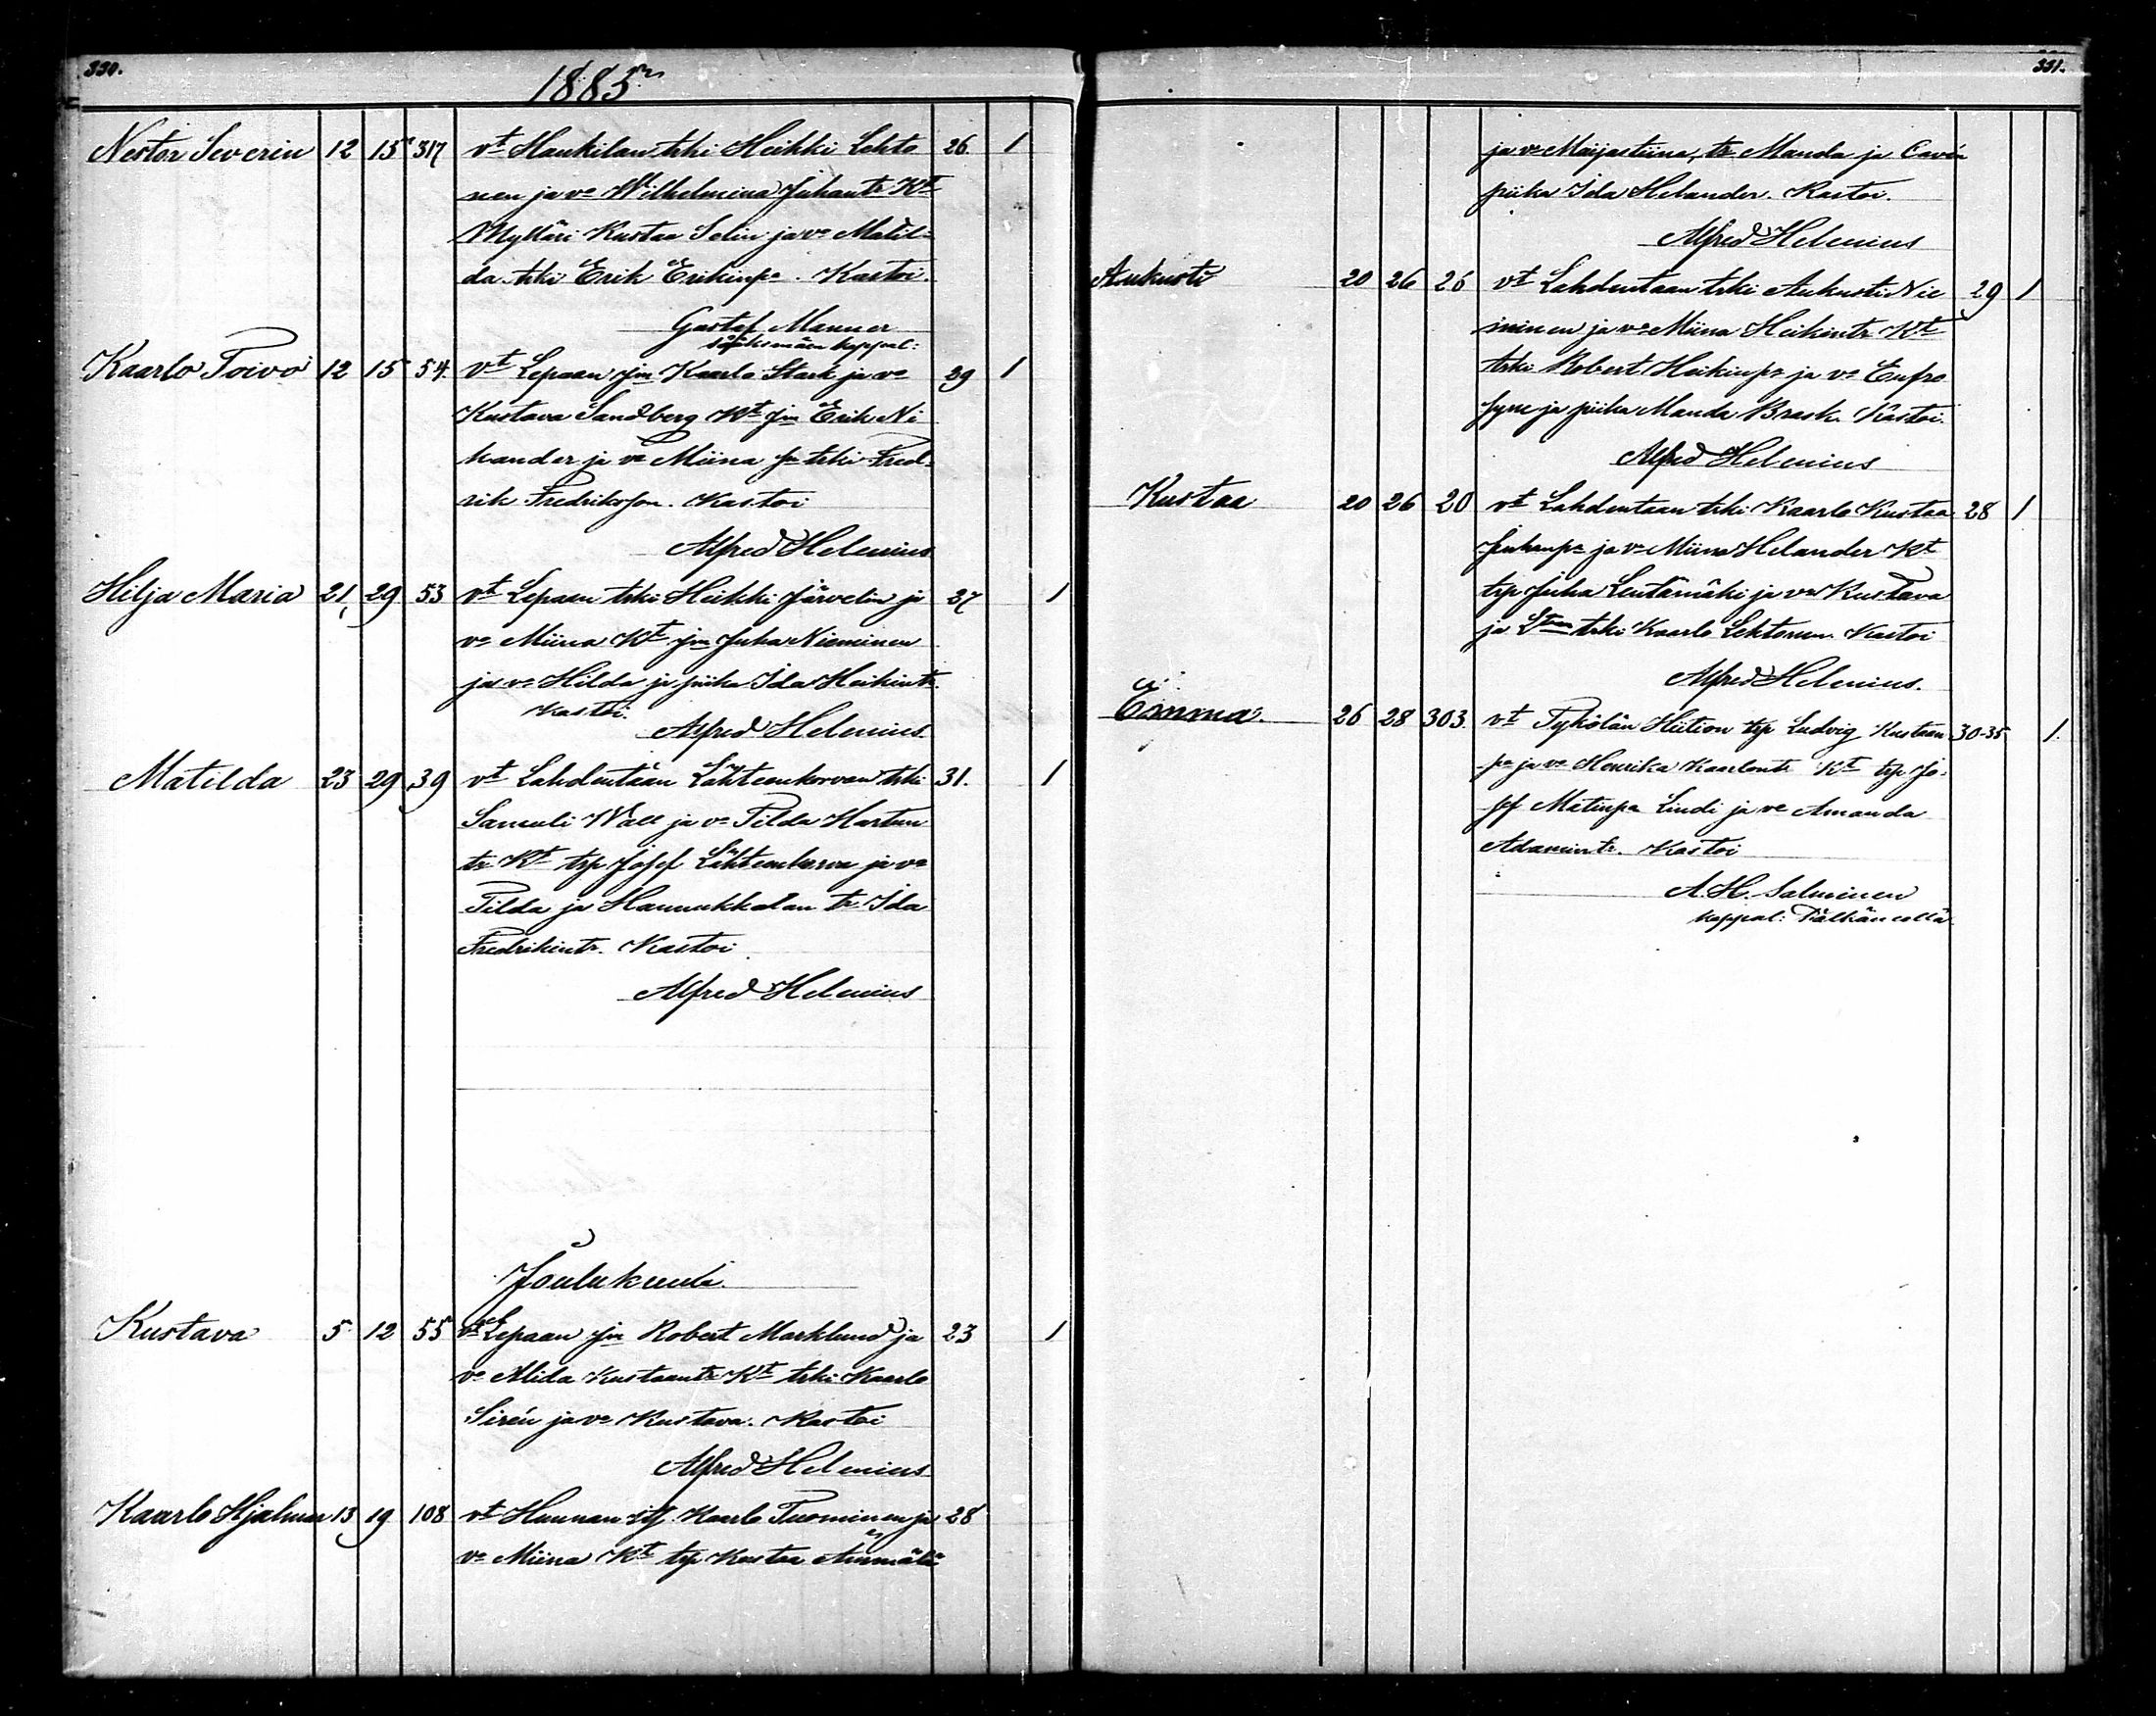 330.
1885
Nestor Severin 12 15 317 vt Haukilan trki Heikki Lehto 26. 1
nen ja vo Wilhelmina Juhantr Kt
Mylläri Kustaa Selin ja vo Matil-
da trki Erik Erikinpa. Kastoi.
Gustaf Manner
Sääksmäen kappal:
Kaarlo Toivo 12 15 54. vt Lepaan jm Kaarlo Stark ja vo 29 1
Kustava Sandberg Kt jm Erik Ni
kander ja vo Miina ja trki Fred-
rik Fredriksson. Kastoi
Alfred Helenius
Hilja Maria 21, 29 53 vt Lepaan trki Heikki Järvelin ja 27 1
vo Miina Kt jm Juha Nieminen
ja vo Hilda ja piika Ida Heikintr.
Kastoi.
Alfred Helenius.
Matilda 23 29 39 vt Lahdentaan Lähteenkorvan trki 31. 1
Samuli Wall ja vo Tilda
tr Kt trp Josef Lähteenkorva ja vo
Tilda ja Hannukkalan tr Ida
Fredrikintr. Kastoi
Alfred Helenius
Joulukuulla.
Kustava 5 12 55 vt Lepaan jm Robert Marklund ja 23 1
vo Alida Kustaantr Kt trki Kaarlo
Sirén ja vo Kustava. Kastoi
Alfred Helenius
Kaarlo Hjalmar 13 19 108 vt Hunnan Kaarlo Tuominen ja 28
vo Miina Kt trp Kustaa
331.
ja vo Maijastiina, tr Manda ja
piika Ida Helander. Kastoi.
Alfred Helenius
Aukusti 20 26 26 vt Lahdentaan trki Aukusti Nie 29 1
minen ja vo Miina Heikintr Kt
trki Robert Heikinpa ja vo Eufro
syne ja piika Manda Brask. Kastoi.
Alfred Helenius
Kustaa 20 26 20 vt Lahdentaan trki Kaarlo Kustaa 28 1
Juhanpa ja vo Miina Helander Kt
trp Juha Lentämäki ja vo Kustava
ja trki Kaarlo Lehtonen. Kastoi
Alfred Helenius.
Emma. 26 28 303. vt Tykölän Hiition trp Ludvig Kustaan 30-35 1.
pa ja vo Henrika Kaarlontr Kt trp Jo-
sef Matinpa Lindi ja vo Amanda
Adamintr. Kastoi
A. H. Salminen
kappal: Pälkäneellä.